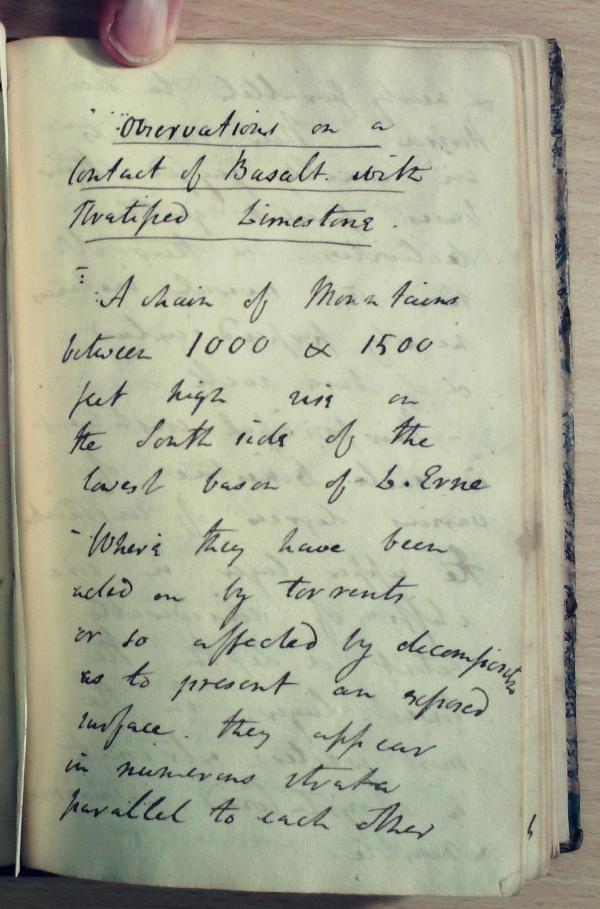 Observations on a
Contact of Basalt. with
Stratified Limestone.
A chain of Mountains
between 1000 & 1500
feet high rise on
the South side of the
lowest bason of L. Erne
Where they have been
acted on by torrents
or so affected by decomposition
as to present an exposed
surface. they appear
in numerous strata
parallel to each other